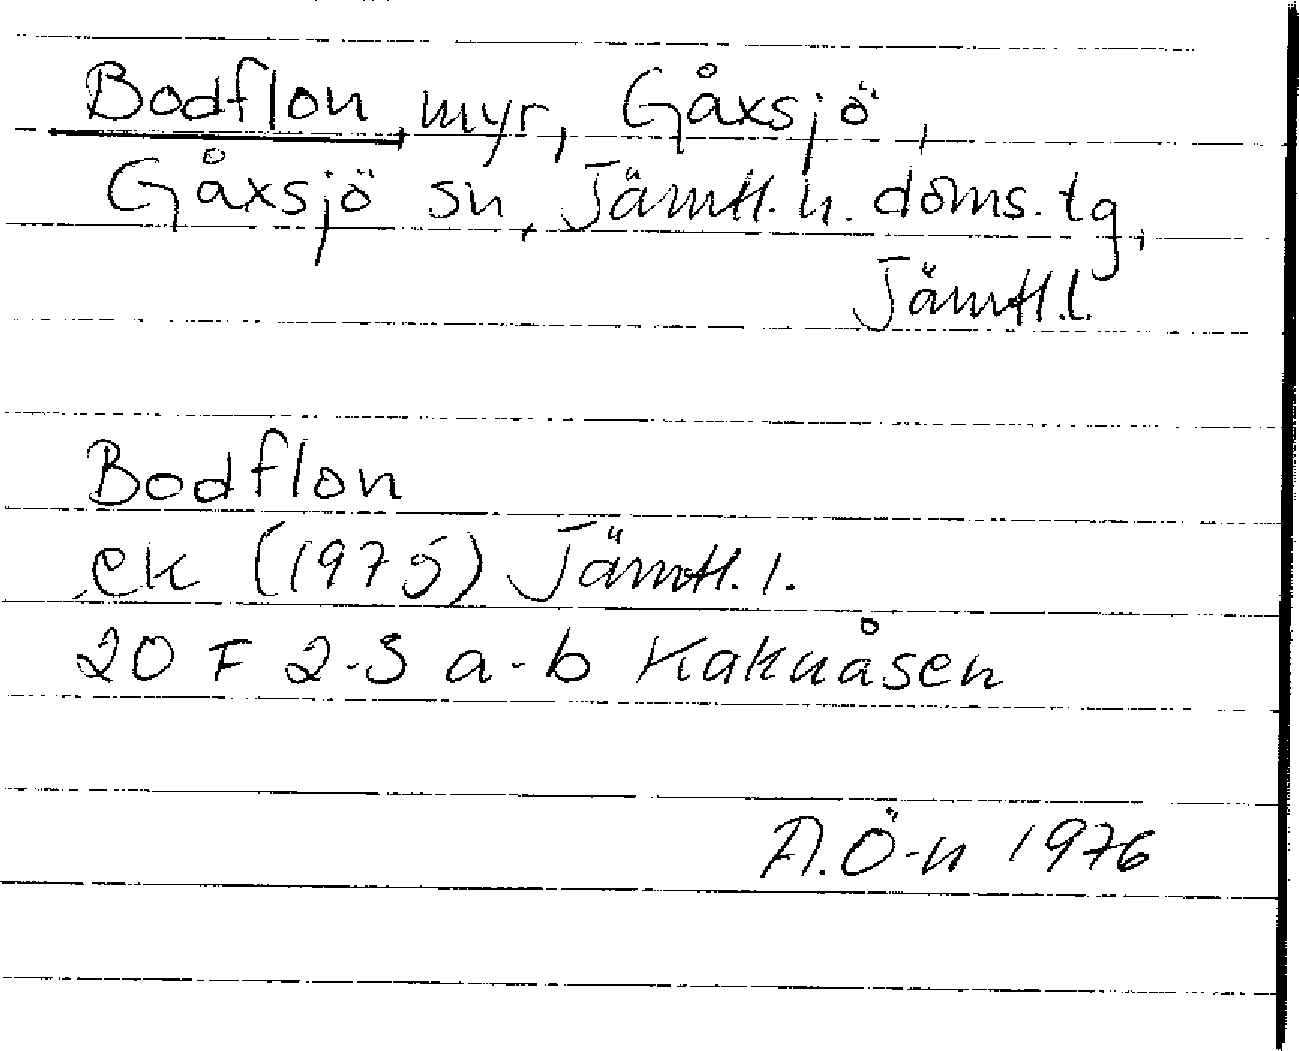 Bodflon, myr, Gåxsjö,
Gåxsjö sn, Jämtl. n. doms. tg,
Jämtl. l.
Bodflon
ek (1975) Jämtl. l.
20 F 2-3 a-b Kaknåsen
A. Ö-n 1976